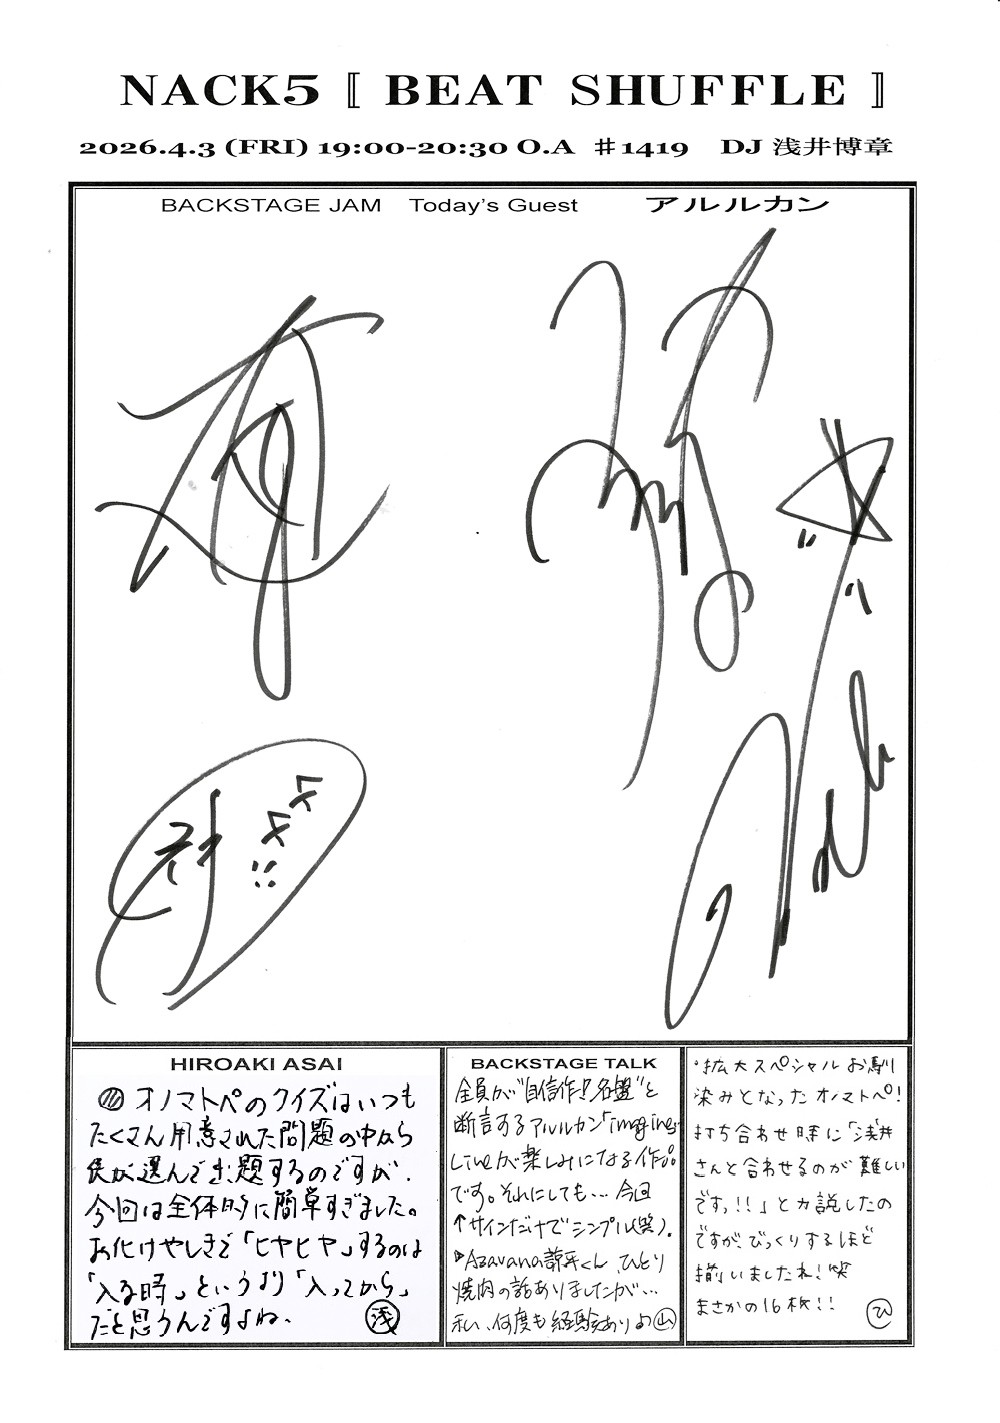 NACK5 〚 BEAT SHUFFLE 〛
2026.4.3 (FRI) 19:00-20:30 O.A ♯1419 DJ 浅井博章
BACKSTAGE JAM Today's Guest アルルカン
HIROAKI ASAI
オノマトペのクイズはいつも
たくさん用意された問題の中から
僕が選んで出題するのですが、
今回は全体的に簡単すぎました。
お化けやしきで「ヒヤヒヤ」するのは
「入る時」というより「入ってから」
だと思うんですよね。
浅
BACKSTAGE TALK
全員が"自信作!名盤"と
断言するアルルカン「imagines」
Liveが楽しみになる作品
です。それにしても…今回
↑サインだけでシンプル(笑)。
Azavana諒平くん、ひとり
焼肉の話ありましたが…
私、何度も経験ありよ 山
・拡大スペシャルお馴
染みとなったオノマトペ!
打ち合わせ時に「浅井
さんと合わせるのが難しい
です!!」と力説したの
ですが、びっくりするほど
揃いましたね!笑
まさかの16枚!!
ひ